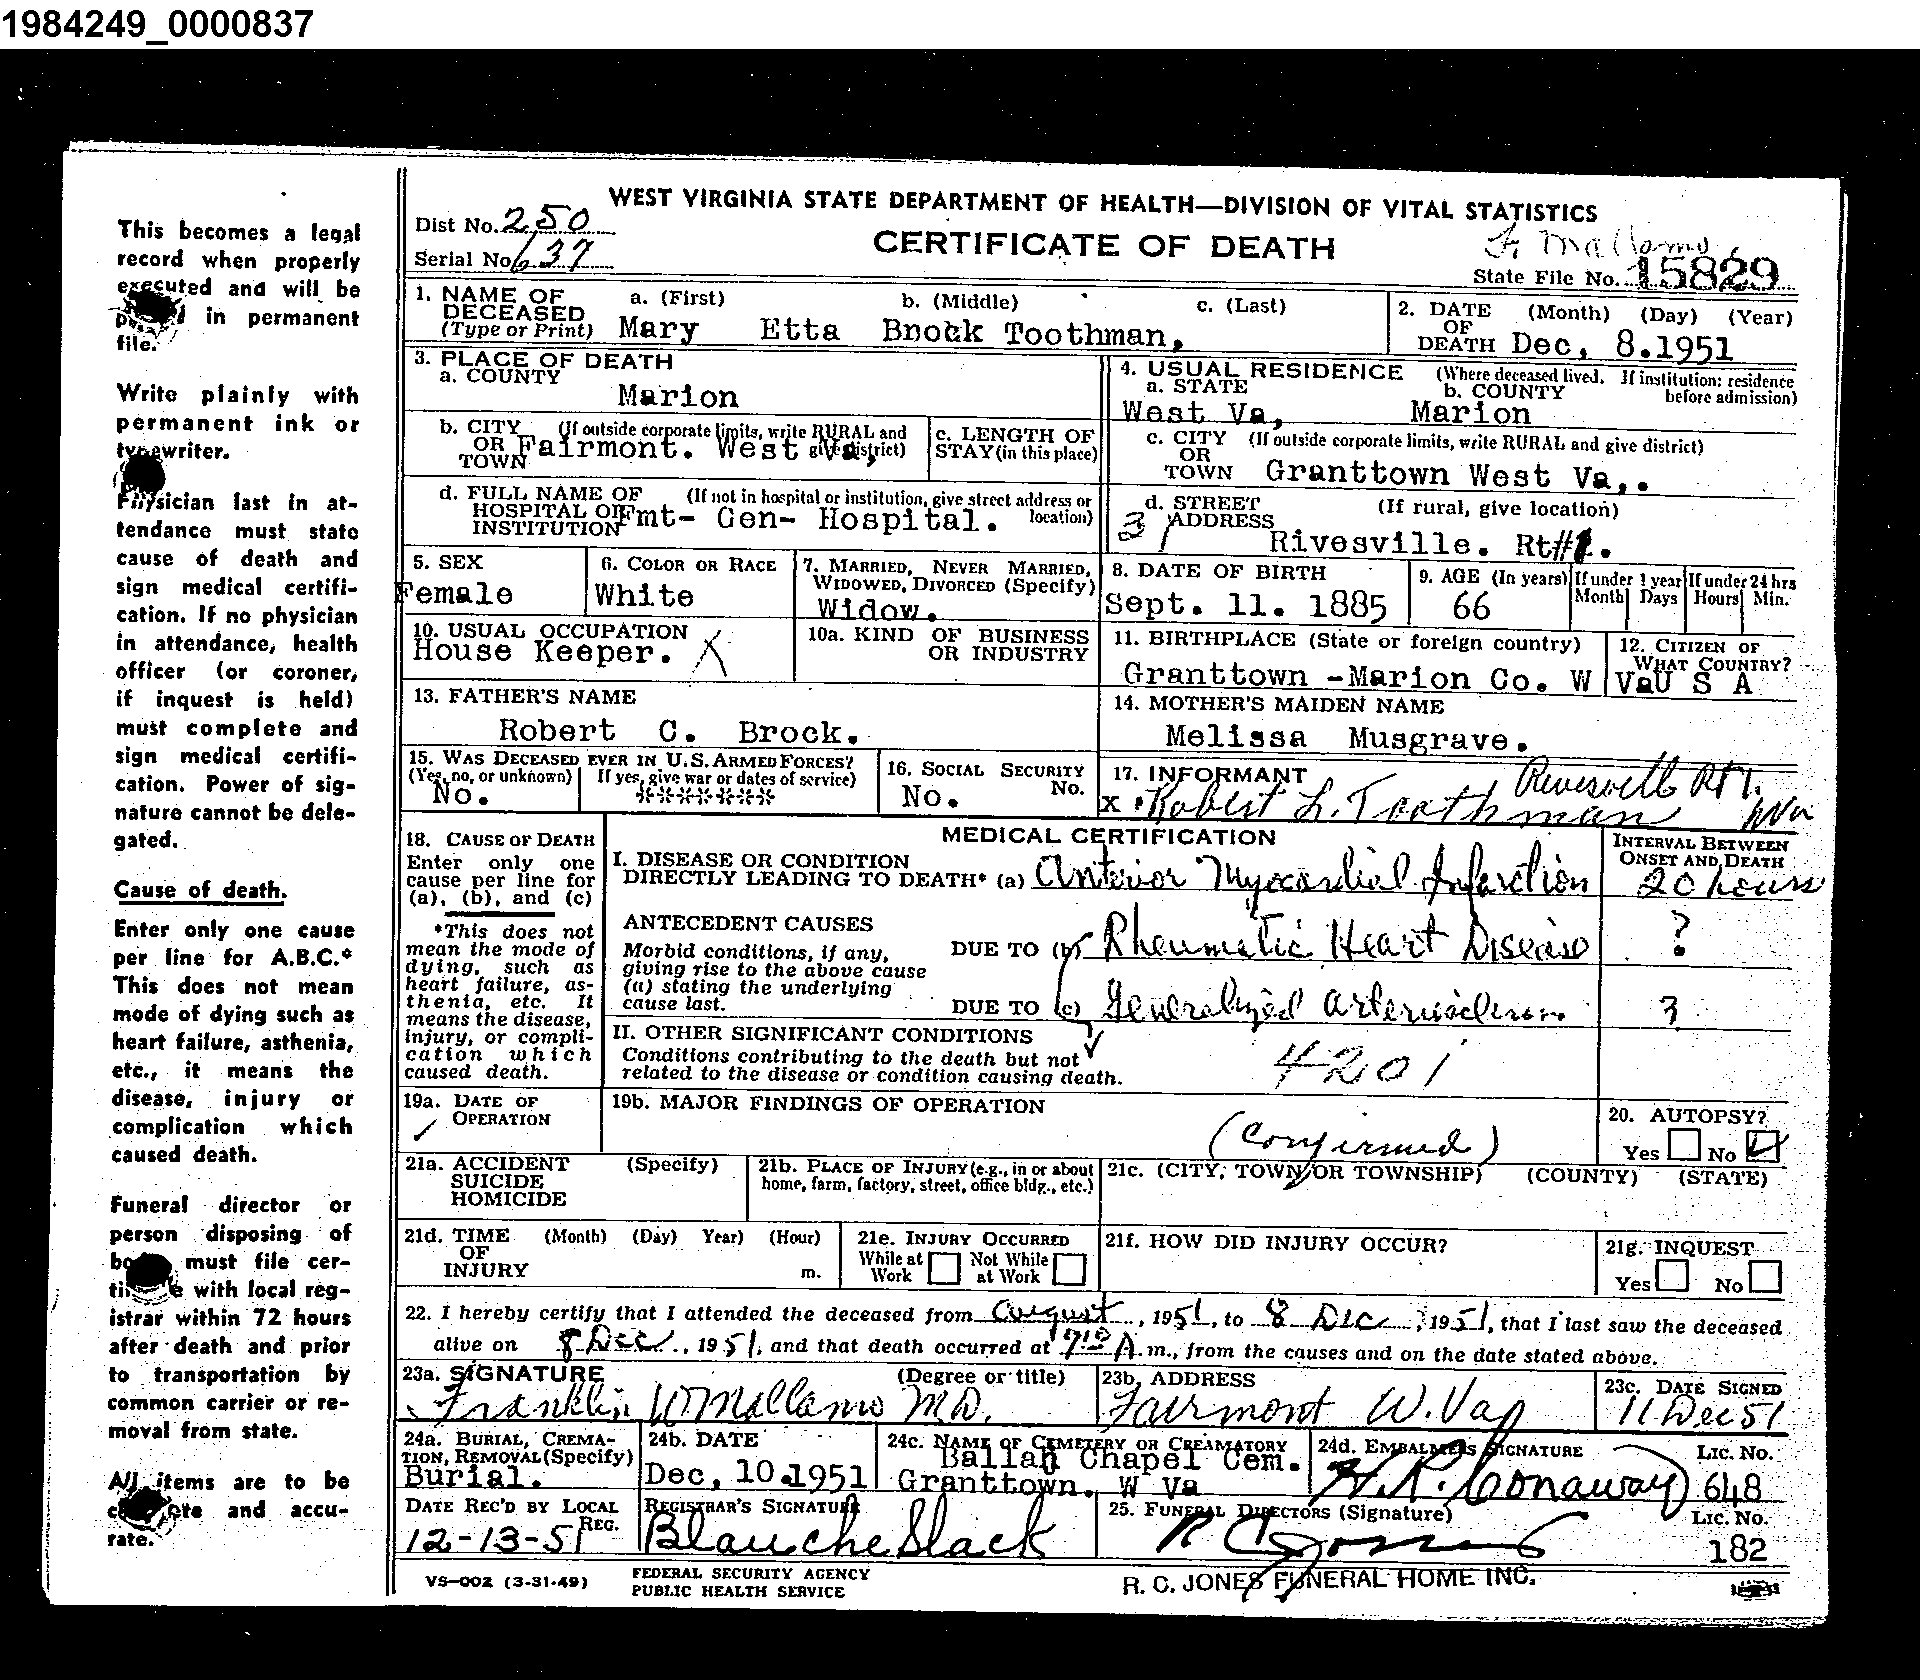 1984249_0000837
This becomes a legal
record when properly
executed and will be
in permanent
file.
Write plainly with
permanent ink or
typewriter.
Physician last in at-
tendance must state
cause of death and
sign medical certifi-
cation. If no physician
in attendance, health
officer (or coroner,
if inquest is held)
must complete and
sign medical certifi-
cation. Power of sig-
nature cannot be dele-
gated.
Cause of death.
Enter only one cause
per line for A.B.C.*
This does not mean
mode of dying such as
heart failure, asthenia,
etc., it means the
disease, injury or
complication which
caused death.
Funeral director or
person disposing of
must file cer-
with local reg-
istrar within 72 hours
after death and prior
to transportation by
common carrier or re-
moval from state.
All items are to be
and accu-
rate.
WEST VIRGINIA STATE DEPARTMENT OF HEALTH—DIVISION OF VITAL STATISTICS
Dist No. 250
Serial No. 637
CERTIFICATE OF DEATH
State File No. 15829
1. NAME OF DECEASED (Type or Print) a. (First) b. (Middle) c. (Last)
Mary Etta Brock Toothman,
2. DATE OF DEATH (Month) (Day) (Year)
Dec, 8.1951
3. PLACE OF DEATH
a. COUNTY
Marion
4. USUAL RESIDENCE (Where deceased lived. If institution: residence before admission)
a. STATE b. COUNTY
West Va, Marion
b. CITY OR TOWN (If outside corporate limits, write RURAL and give district)
Fairmont. West Va,
c. LENGTH OF STAY (in this place)
c. CITY OR TOWN (If outside corporate limits, write RURAL and give district)
Granttown West Va,.
d. FULL NAME OF HOSPITAL OR INSTITUTION (If not in hospital or institution, give street address or location)
Fmt- Gen- Hospital.
d. STREET ADDRESS (If rural, give location)
31
Rivesville. Rt#1.
5. SEX
Female
6. COLOR OR RACE
White
7. MARRIED, NEVER MARRIED, WIDOWED, DIVORCED (Specify)
Widow.
8. DATE OF BIRTH
Sept. 11. 1885
9. AGE (In years)
66
If under 1 year Month Days
If under 24 hrs Hours Min.
10. USUAL OCCUPATION
House Keeper. X
10a. KIND OF BUSINESS OR INDUSTRY
11. BIRTHPLACE (State or foreign country)
Granttown -Marion Co. W Va
12. CITIZEN OF WHAT COUNTRY?
U S A
13. FATHER'S NAME
Robert C. Brock.
14. MOTHER'S MAIDEN NAME
Melissa Musgrave.
15. WAS DECEASED EVER IN U.S. ARMED FORCES?
(Yes, no, or unknown) If yes, give war or dates of service)
No. *******
16. SOCIAL SECURITY No.
No.
17. INFORMANT
X Robert L. Toothman
18. CAUSE OF DEATH
Enter only one
cause per line for
(a), (b), and (c)
*This does not
mean the mode of
dying, such as
heart failure, as-
thenia, etc. It
means the disease,
injury, or compli-
cation which
caused death.
MEDICAL CERTIFICATION
INTERVAL BETWEEN ONSET AND DEATH
I. DISEASE OR CONDITION
DIRECTLY LEADING TO DEATH* (a) Anterior Myocardial Infarction 20 hours
ANTECEDENT CAUSES
Morbid conditions, if any,
giving rise to the above cause
(a) stating the underlying
cause last.
DUE TO (b) Rheumatic Heart Disease ?
DUE TO (c) Generalized ?
II. OTHER SIGNIFICANT CONDITIONS
Conditions contributing to the death but not
related to the disease or condition causing death.
4201
19a. DATE OF OPERATION
19b. MAJOR FINDINGS OF OPERATION
(Confirmed)
20. AUTOPSY?
Yes No
21a. ACCIDENT SUICIDE HOMICIDE (Specify)
21b. PLACE OF INJURY (e.g., in or about home, farm, factory, street, office bldg., etc.)
21c. (CITY, TOWN OR TOWNSHIP) (COUNTY) (STATE)
21d. TIME OF INJURY (Month) (Day) Year) (Hour) m.
21e. INJURY OCCURRED
While at Work Not While at Work
21f. HOW DID INJURY OCCUR?
21g. INQUEST
Yes No
22. I hereby certify that I attended the deceased from August, 1951, to 8 Dec, 1951, that I last saw the deceased
alive on 8 Dec, 1951, and that death occurred at A.m., from the causes and on the date stated above.
23a. SIGNATURE (Degree or title)
Franklin W Mallamo M.D.
23b. ADDRESS
Fairmont W. Va
23c. DATE SIGNED
11 Dec 51
24a. BURIAL, CREMATION, REMOVAL (Specify)
Burial.
24b. DATE
Dec, 10.1951
24c. NAME OF CEMETERY OR CREAMATORY
Ballah Chapel Cem.
Granttown. W Va
24d. EMBALMERS SIGNATURE Lic. No.
H. R. Conaway 648
DATE REC'D BY LOCAL REG.
12-13-51
REGISTRAR'S SIGNATURE
Blanche Slack
25. FUNERAL DIRECTORS (Signature) Lic. No.
R C Jones 182
VS-002 (3-31-49)
FEDERAL SECURITY AGENCY
PUBLIC HEALTH SERVICE
R. C. JONES FUNERAL HOME INC.